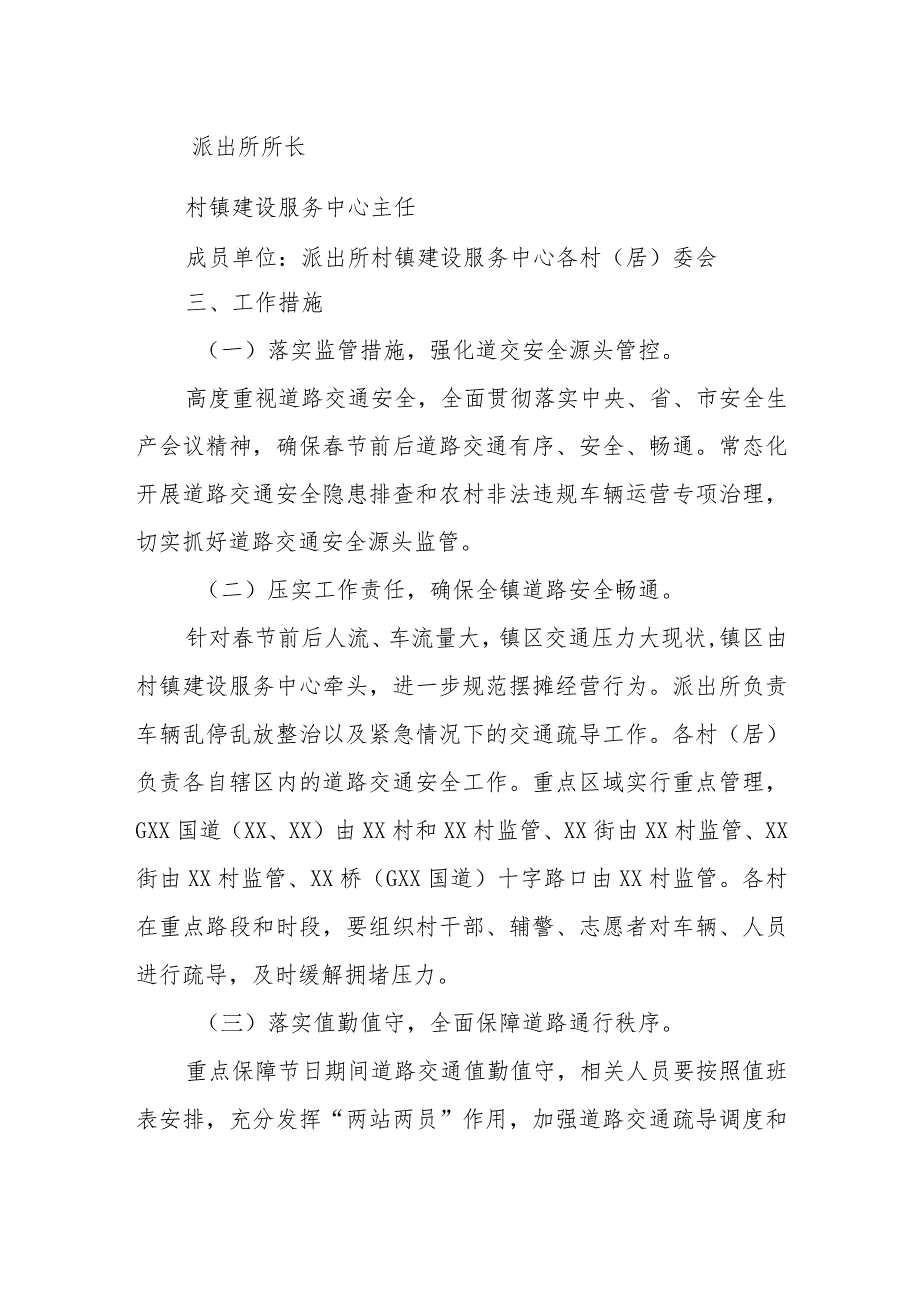 派出所所长
村镇建设服务中心主任
成员单位：派出所村镇建设服务中心各村（居）委会
三、工作措施
（一）落实监管措施，强化道交安全源头管控。
高度重视道路交通安全，全面贯彻落实中央、省、市安全生
产会议精神，确保春节前后道路交通有序、安全、畅通。常态化
开展道路交通安全隐患排查和农村非法违规车辆运营专项治理，
切实抓好道路交通安全源头监管。
（二）压实工作责任，确保全镇道路安全畅通。
针对春节前后人流、车流量大，镇区交通压力大现状,镇区由
村镇建设服务中心牵头，进一步规范摆摊经营行为。派出所负责
车辆乱停乱放整治以及紧急情况下的交通疏导工作。各村（居）
负责各自辖区内的道路交通安全工作。重点区域实行重点管理，
GXX国道（XX、XX）由XX村和XX村监管、XX街由XX村监管、XX
街由XX村监管、XX桥（GXX国道）十字路口由XX村监管。各村
在重点路段和时段，要组织村干部、辅警、志愿者对车辆、人员
进行疏导，及时缓解拥堵压力。
（三）落实值勤值守，全面保障道路通行秩序。
重点保障节日期间道路交通值勤值守，相关人员要按照值班
表安排，充分发挥“两站两员”作用，加强道路交通疏导调度和